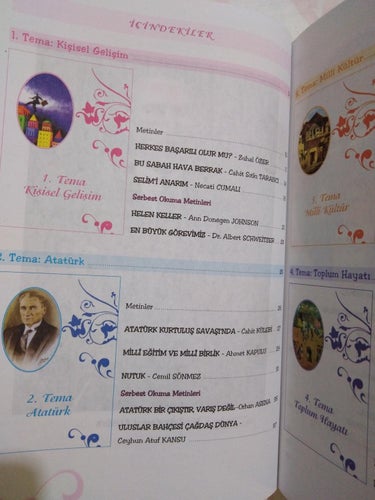 İÇİNDEKİLER
1. Tema: Kişisel Gelişim
1. Tema
Kişisel Gelişim
Metinler
HERKES BAŞARILI OLUR MU? - Zuhal ÖZER
BU SABAH HAVA BERRAK - Cahit Sıtkı TARANCI
SELİM'İ ANARIM - Necati CUMALI
Serbest Okuma Metinleri
HELEN KELLER - Ann Donegen JOHNSON
EN BÜYÜK GÖREVİMİZ - Dr. Albert SCHWEITZER
2. Tema: Atatürk
2. Tema
Atatürk
Metinler
ATATÜRK KURTULUŞ SAVAŞI'NDA - Cahit KÜLEBİ
MİLLÎ EĞİTİM VE MİLLÎ BİRLİK - Ahmet
NUTUK - Cemil SÖNMEZ
Serbest Okuma Metinleri
ATATÜRK BİR ÇIKIŞTIR, VARIŞ DEĞİL - Orhan
ULUSLAR BAHÇESİ ÇAĞDAŞ DÜNYA - 37
Ceyhun Atuf KANSU
Tema: Millî Kültür
3. Tema
Millî Kültür
4. Tema: Toplum Hayatı
4. Tema
Toplum Hayatı